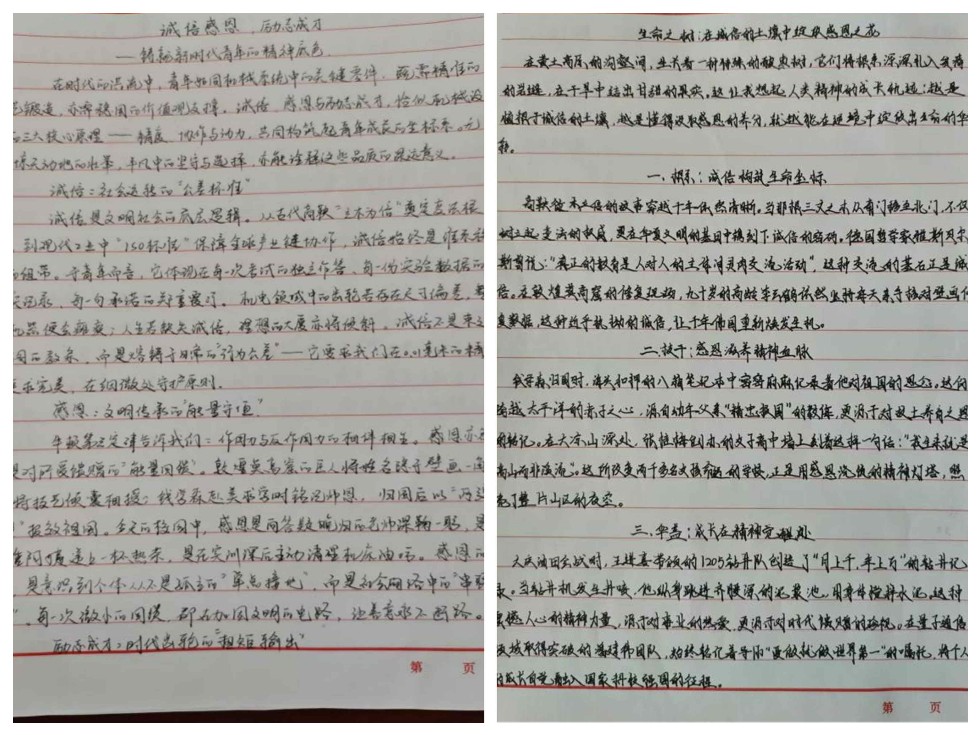 诚信感恩，励志成才
——铸就新时代青年的精神底色
在时代的洪流中，青年如同机械系统中的关键零件，既需精准的
锻造，亦需稳固的价值观支撑。诚信、感恩与励志成才，恰似机械设
三大核心原理——精度、协作与动力，共同构筑起青年成长的坐标系。无
惊天动地的壮举，平凡中的坚守与选择，亦能诠释这些品质的深远意义。
诚信：社会运转的"公差标准"
诚信是文明社会的底层逻辑。从古代商鞅"立木为信"奠定变法根
到现代工业中"ISO标准"保障全球产业链协作，诚信始终是维系
纽带。于青年而言，它体现在每一次考试的独立作答、每一份实验数据的
实记录、每一句承诺的郑重履行。机电领域中的齿轮若存在尺寸偏差，
器便会瘫痪；人生若缺失诚信，理想的大厦亦将倾斜。诚信不是束之
阁的教条，而是熔铸于日常的"行为公差"——它要求我们在0.01毫米的精
求完美，在细微处守护原则。
感恩：文明传承的"能量守恒"
牛顿第三定律告诉我们：作用力与反作用力的相伴相生。感恩亦
是对所受馈赠的"能量回馈"。敦煌莫高窟的工人将姓名隐于壁画一角
将技艺倾囊相授；钱学森赴美求学时铭记师恩，归国后以
报效祖国。今天的校园中，感恩是向答疑晚归的老师深鞠一躬，是
阿姨递上一杯热茶，是在实训课后主动清理机床油污。感恩
是意识到个体从不是孤立的"单点接地"，而是社会网络中的"串联
每一次微小的回馈，都在加固文明的电路，让善意永不断路。
励志成才：时代齿轮的"扭矩输出"
第 页
生命之树：在诚信的土壤中绽放感恩之花
在黄土高原的沟壑间，生长着一种特殊的酸枣树，它们将根系深深扎入贫瘠
的岩缝，在干旱中结出甘甜的果实。这让我想起人类精神的成长轨迹：越是
植根于诚信的土壤，越是懂得汲取感恩的养分，就越能在逆境中绽放出生命的华
一、根系：诚信构筑生命坐标
商鞅徙木立信的故事穿越千年依然清晰。当那根三丈之木从南门移至北门，不仅
树立起变法的权威，更在华夏文明的基因中镌刻下诚信的密码。德国哲学家雅斯贝尔
斯曾说："真正的教育是人对人的主体间灵肉交流活动"，这种交流的基石正是诚
信。在敦煌莫高窟的修复现场，九十岁的高龄李云鹤依然坚持每天亲手核对壁画
复数据，这种近乎执拗的诚信，让千年佛国重新焕发生机。
二、枝干：感恩滋养精神血脉
钱学森归国时，海关扣押的八箱笔记本中密密麻麻记录着他对祖国的思念。这份
跨越太平洋的赤子之心，源自幼年父亲"精忠报国"的教诲，更源于对故土养育之恩
的铭记。在大凉山深处，张桂梅创办的女子高中墙上刻着这样一句话："我生来就是
高山而非溪流"。这所改变两千多名女孩命运的学校，正是用感恩浇铸的精神灯塔，照
亮了整片山区的夜空。
三、华盖：成长在精神完型处
大庆油田会战时，王进喜带领的1205钻井队创造了"月上千，年上万"的钻井记
录。当钻井机发生井喷，他纵身跳进齐腰深的泥浆池，用身体搅拌水泥。这种
震撼人心的精神力量，源于对事业的热爱，更源于对时代馈赠的珍视。在量子通信
领域取得突破的潘建伟团队，始终铭记着导师"要做就做世界第一"的嘱托，将个人
的成长自觉融入国家科技强国的征程。
第 页